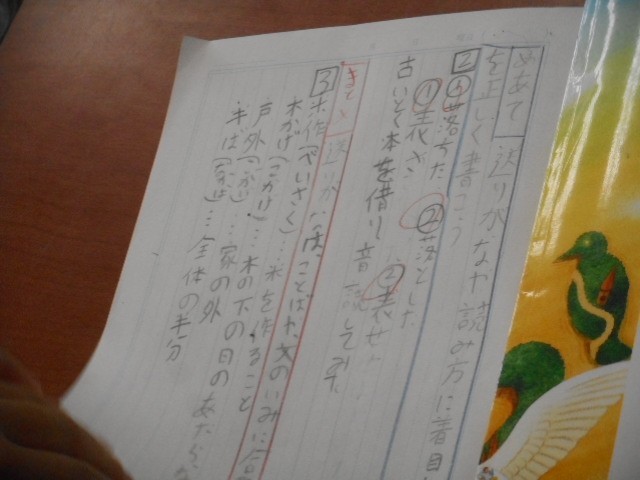 めあて 送りがなや読み方に着目
を正しく書こう
2 ① 落ちた ② 落とした
① 表さ ② 表せ
古いとく本を借り音読してみた
まとめ 送りがなは、ことばや文のいみに合
3 米作(べいさく)…米を作ること
木かげ(こかげ)…木の下の日のあたら
戸外(こがい)…家の外
半ば(なかば)…全体の半分